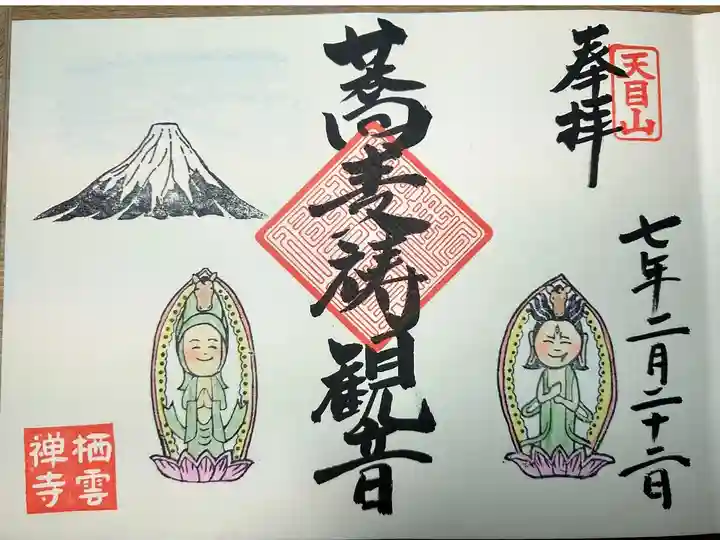 天目山
奉拝
七年二月二十二日
蕎麦祷観音
栖雲
禅寺